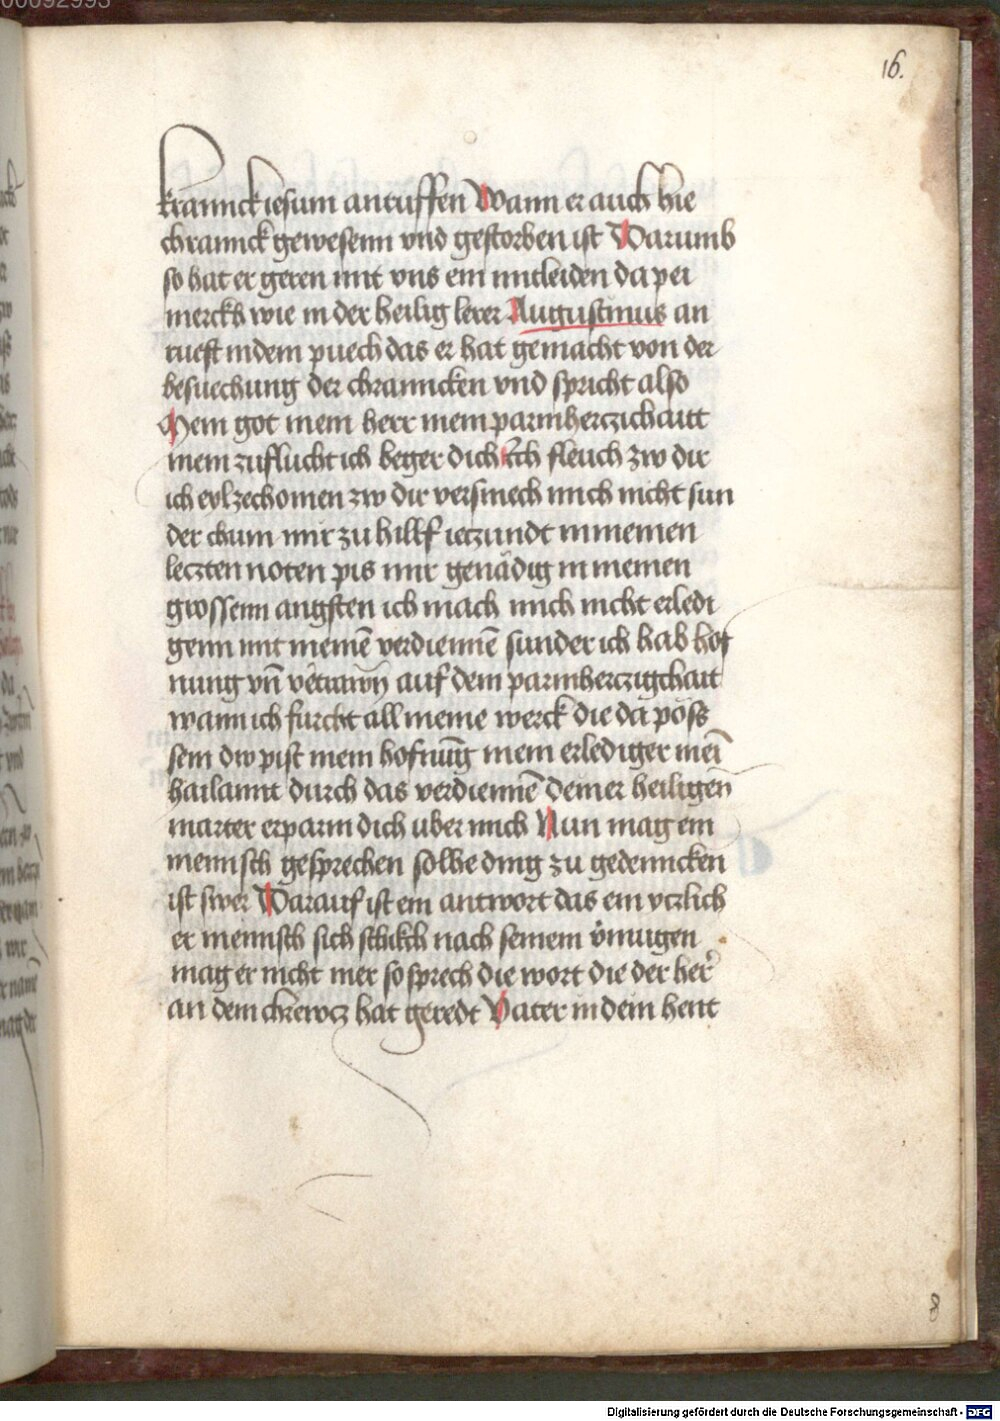 16.
krannck iesum anruffen Wann er auch hie
chrannck gewesenn vnd gestorben ist Warumb
so hat er geren mit vns ein mitleiden da pei
merckh wie in der heilig lerer Augustinus an
rueft in dem puech das er hat gemacht von der
besuechung der chrannicken vnd spricht also
Mein got mein herr mein parmherczichaitt
mein zuflucht ich beger dich Ich fleuch zw dir
ich eylzechomen zw dir versmech mich nicht sun
der chum mir zu hillf ieczundt in meinen
leczten noten pis mir genädig in meinen
grossenn angsten ich mach mich nicht erledi
genn mit meinē verdiennē sunder ich hab hof
nung vn̄ vētrawn̄ auf dein parmherczigchait
wann ich furcht all meine werck die da poss
sein dw pist mein hofnūg mein erlediger mei̅
hailannt durch das verdiennē deiner heiligen̄
marter erparm dich uber mich Nun mag ein
mennsch gesprechen solhe ding zu gedenncken
ist swer Darauf ist ein antwort das ein yczlich
er mennsch sich schikch nach seinem vermugen
mag er nicht mer so sprech die wort die der her̄
an dem chrewcz hat geredt Vater in dein hent
8
Digitalisierung gefördert durch die Deutsche Forschungsgemeinschaft - DFG